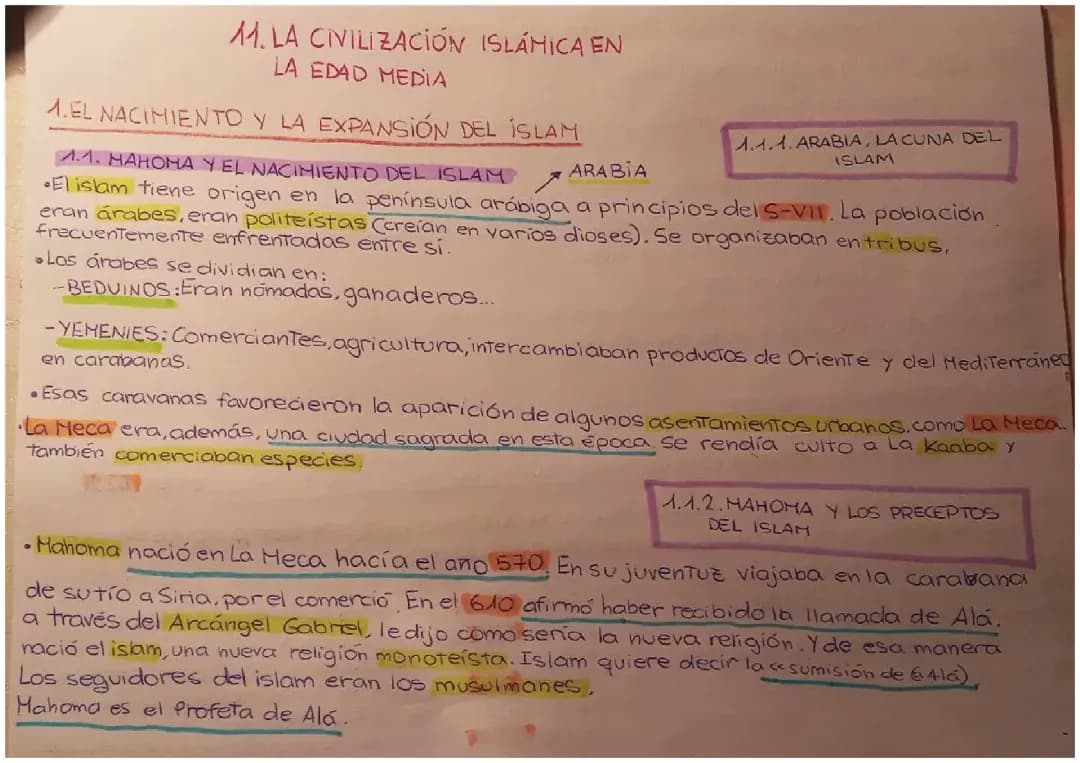 11. LA CIVILIZACIÓN ISLÁMICA EN
LA EDAD MEDIA
1. EL NACIMIENTO Y LA EXPANSIÓN DEL ISLAM
1.1.1. ARABIA, LA CUNA DEL
ISLAM
1.1. MAHOMA Y EL NACIMIENTO DEL ISLAM
ARABIA
• El islam tiene origen en la península arábiga a principios del S-VII. La población
eran árabes, eran politeístas (creían en varios dioses). Se organizaban en tribus,
frecuentemente enfrentadas entre sí.
• Los árabes se dividian en:
- BEDUINOS: Eran nómadas, ganaderos...
- YEMENIES: Comerciantes, agricultura, intercambiaban productos de Oriente y del Mediterráneo
en carabanas.
• Esas caravanas favorecieron la aparición de algunos asentamientos urbanos, como La Meca.
• La Meca era, además, una ciudad sagrada en esta época se rendía culto a La Kaaba y
también comerciaban especies.
1.1.2. MAHOMA Y LOS PRECEPTOS
DEL ISLAM
• Mahoma nació en La Meca hacía el año 570. En su juventuz viajaba en la carabana
de su tío a Siria, por el comerció. En el 610 afirmó haber recibido la llamada de Alá.
a través del Arcángel Gabriel, le dijo como sería la nueva religión. Y de esa manera
nació el islam, una nueva religión monoteísta. Islam quiere decir la «sumisión de a Alá)
Los seguidores del islam eran los musulmanes.
Mahoma es el Profeta de Alá.